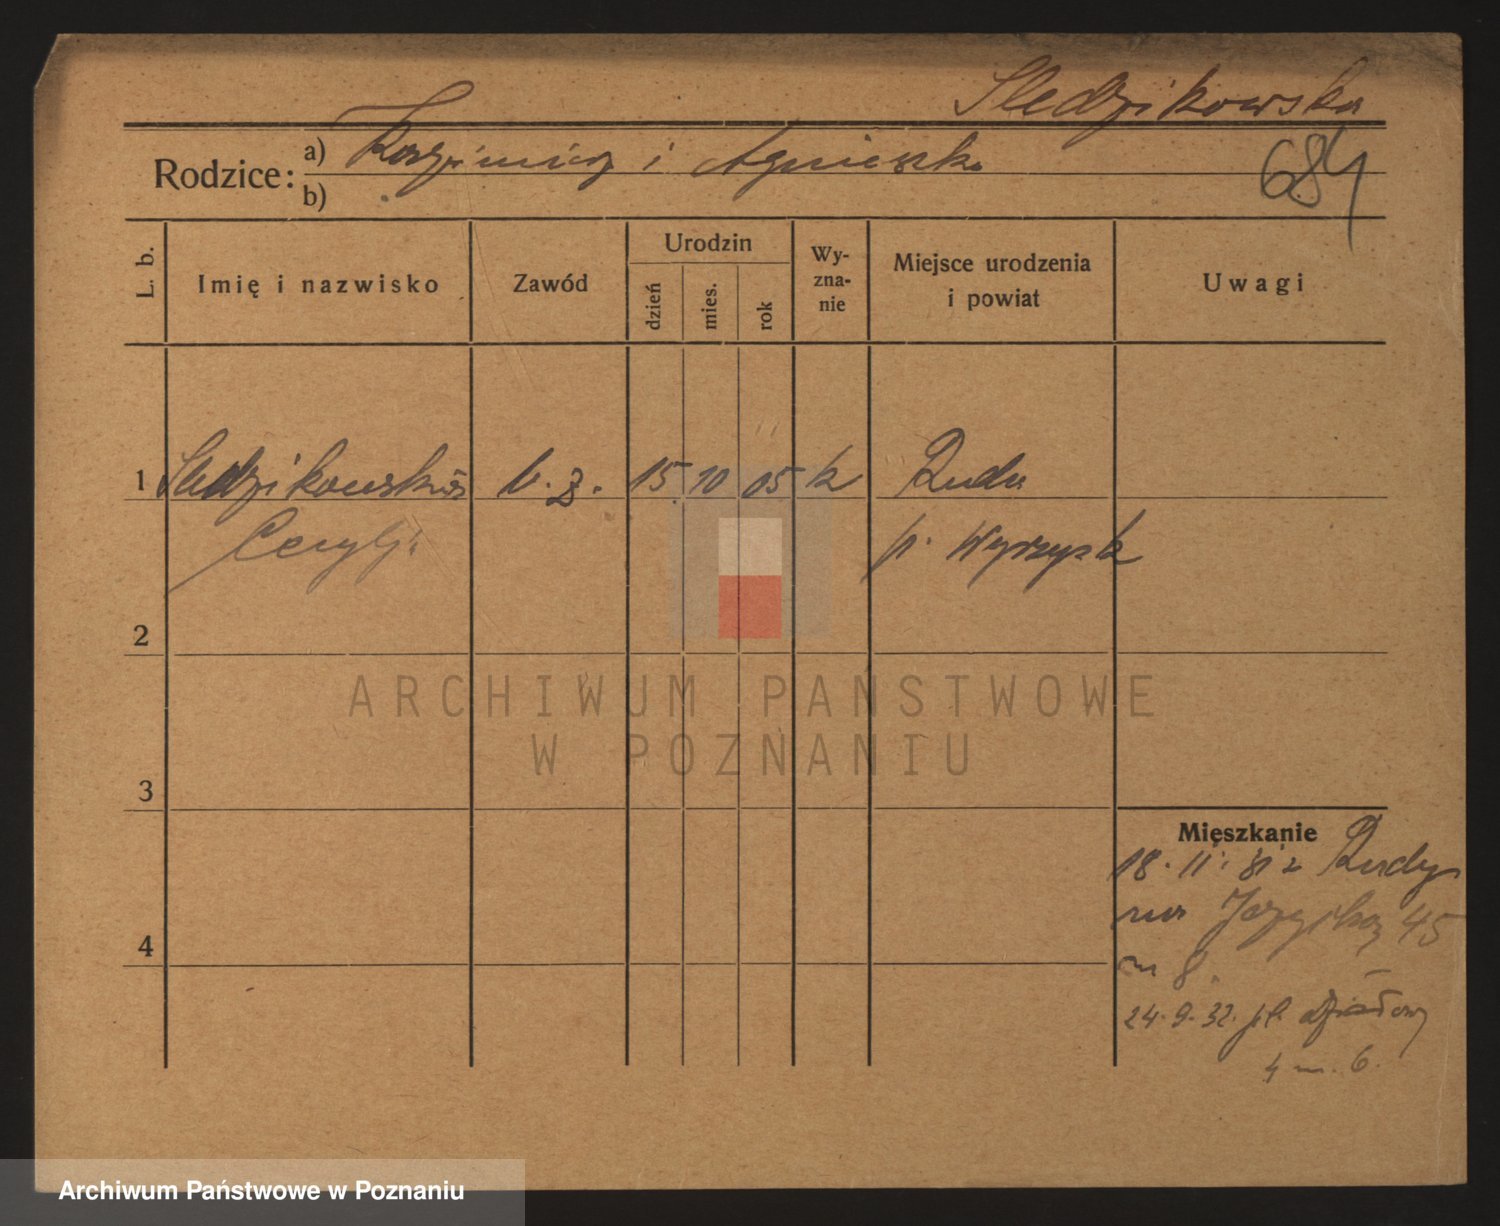 Sledzikowska
Rodzice:
a) Kazimierz i Agnieszka
b)
684
L. b.
Imię i nazwisko
Zawód
Urodzin
dzień
mies.
rok
Wy-
zna-
nie
Miejsce urodzenia
i powiat
Uwagi
1 Sledzikowska b. z. 15 10 05 k Ruda
p. Wyrzysk
2
ARCHIWUM PAŃSTWOWE
W POZNANIU
3
Mieszkanie
18. 11. 31 z Rudy
45
m 8.
24. 9. 32. pl. Działowy
4 m. 6.
4
Archiwum Państwowe w Poznaniu